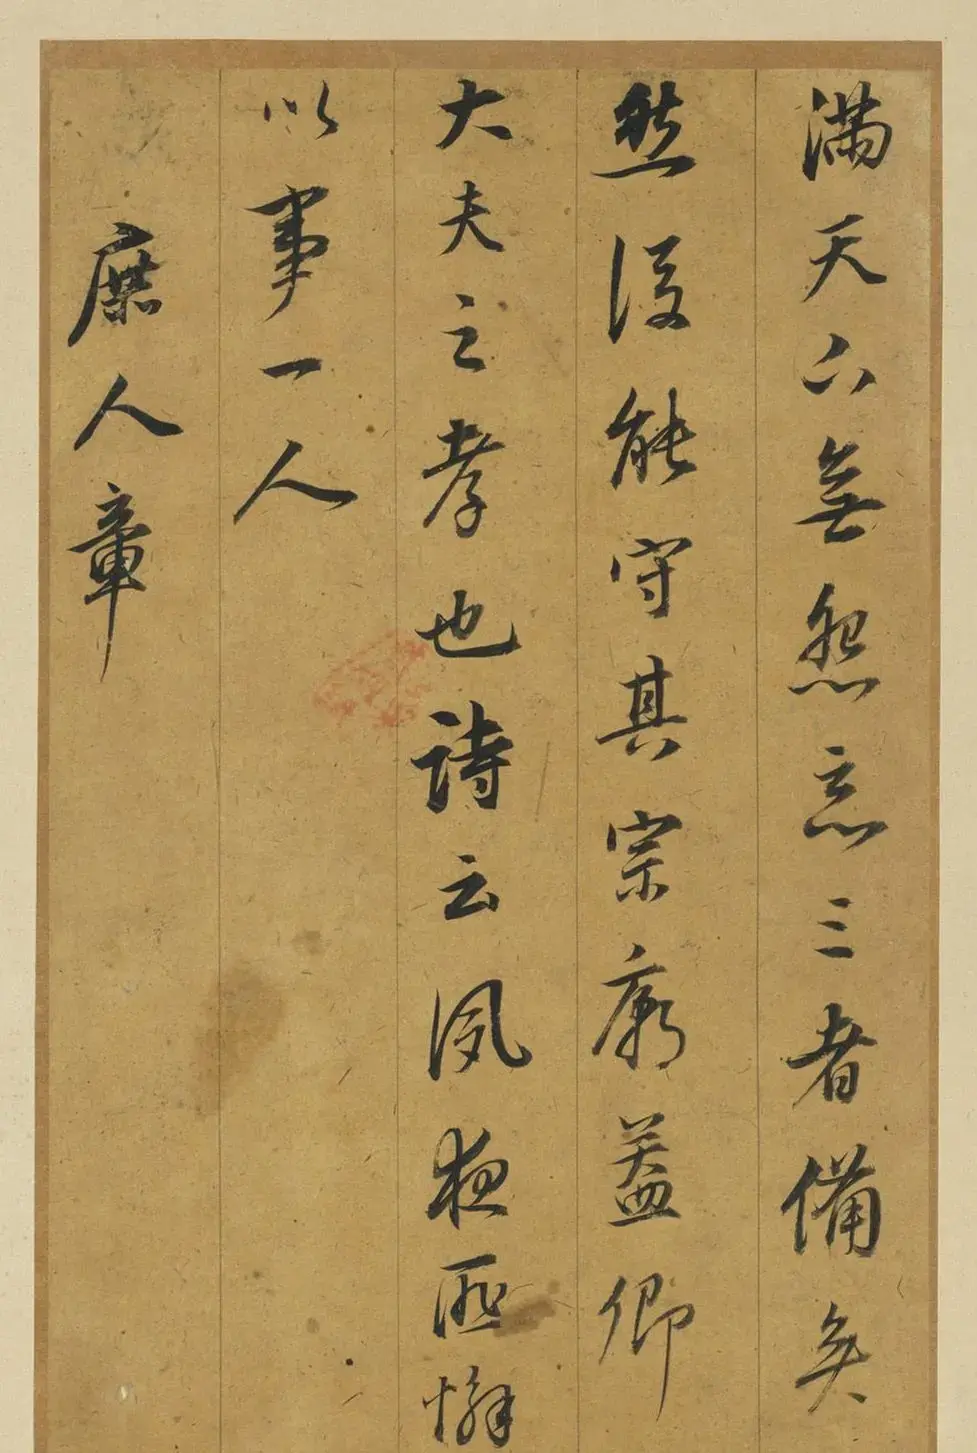 滿天下無怨惡三者備矣
然後能守其宗廟蓋卿
大夫之孝也詩云夙夜匪懈
以事一人
庶人章